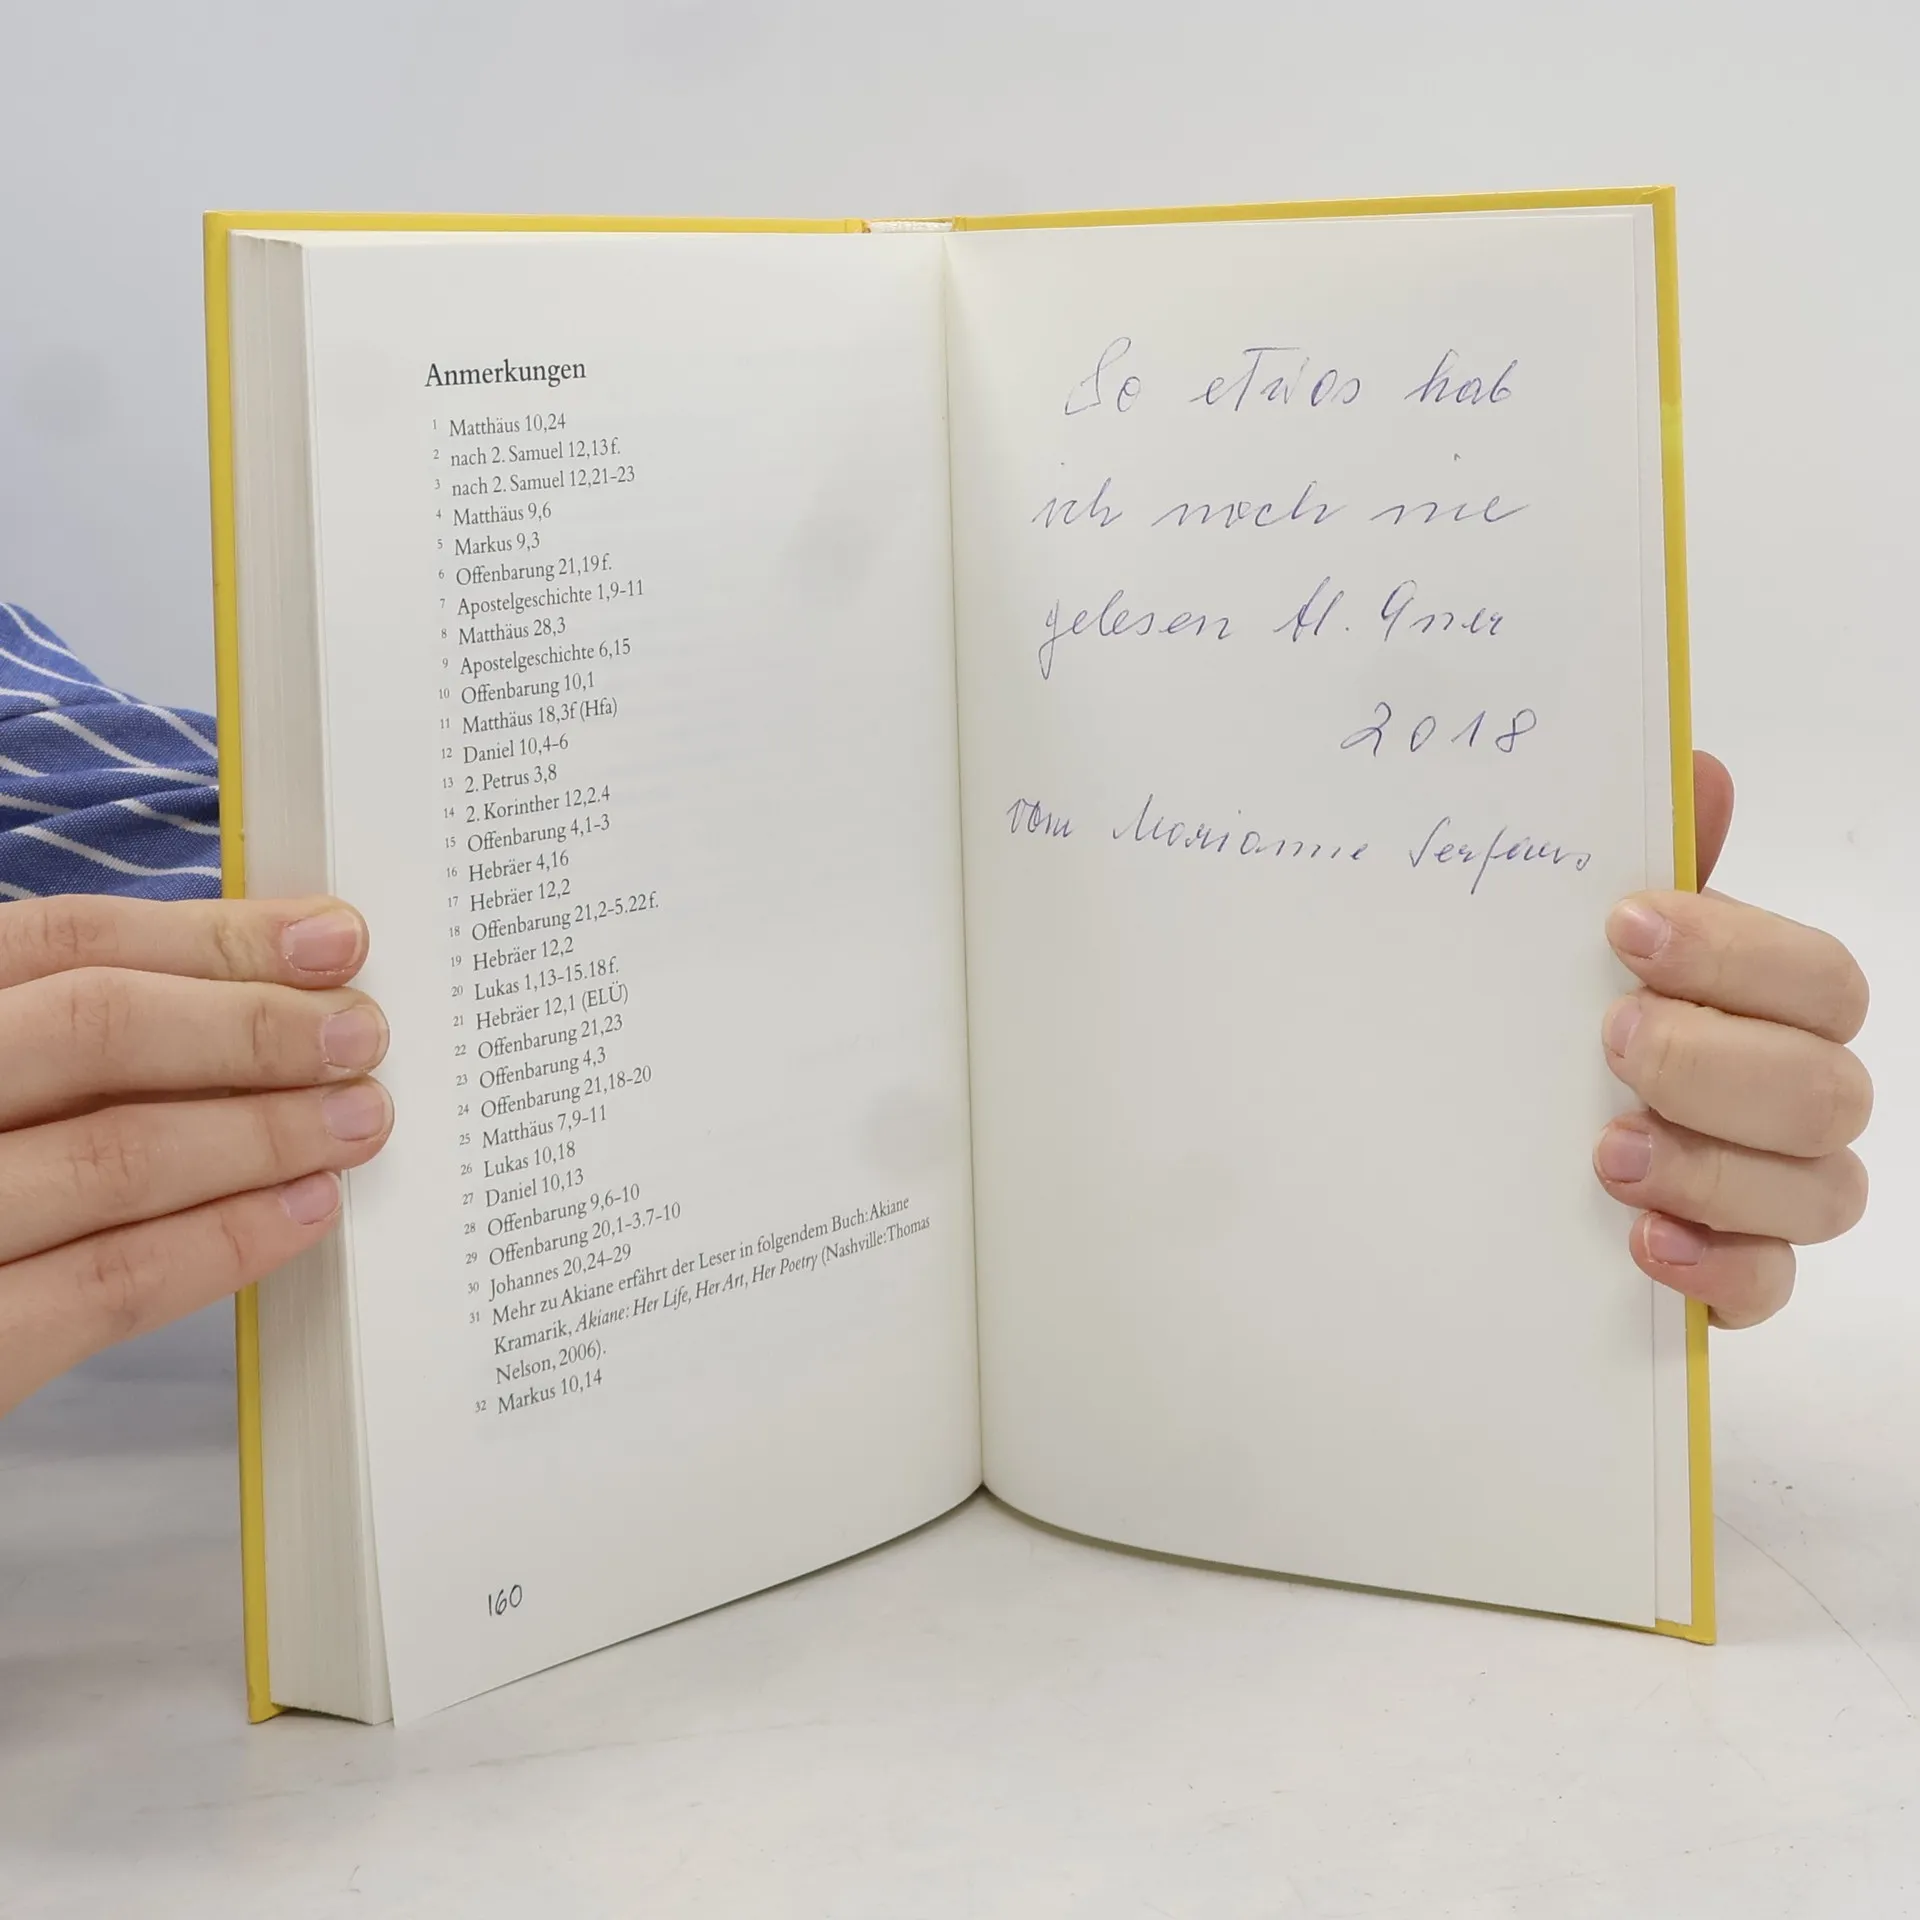 Anmerkungen
1 Matthäus 10,24
2 nach 2. Samuel 12,13f.
3 nach 2. Samuel 12,21–23
4 Matthäus 9,6
5 Markus 9,3
6 Offenbarung 21,19f.
7 Apostelgeschichte 1,9–11
8 Matthäus 28,3
9 Apostelgeschichte 6,15
10 Offenbarung 10,1
11 Matthäus 18,3f (Hfa)
12 Daniel 10,4–6
13 2. Petrus 3,8
14 2. Korinther 12,2.4
15 Offenbarung 4,1–3
16 Hebräer 4,16
17 Hebräer 12,2
18 Offenbarung 21,2–5.22f.
19 Hebräer 12,2
20 Lukas 1,13–15.18f.
21 Hebräer 12,1 (ELÜ)
22 Offenbarung 21,23
23 Offenbarung 4,3
24 Offenbarung 21,18–20
25 Matthäus 7,9–11
26 Lukas 10,18
27 Daniel 10,13
28 Offenbarung 9,6–10
29 Offenbarung 20,1–3.7–10
30 Johannes 20,24–29
31 Mehr zu Akiane erfährt der Leser in folgendem Buch: Akiane
Kramarik, Akiane: Her Life, Her Art, Her Poetry (Nashville: Thomas
Nelson, 2006).
32 Markus 10,14
160
So etwas hab
ich noch nie
gelesen
2018
von Marianne